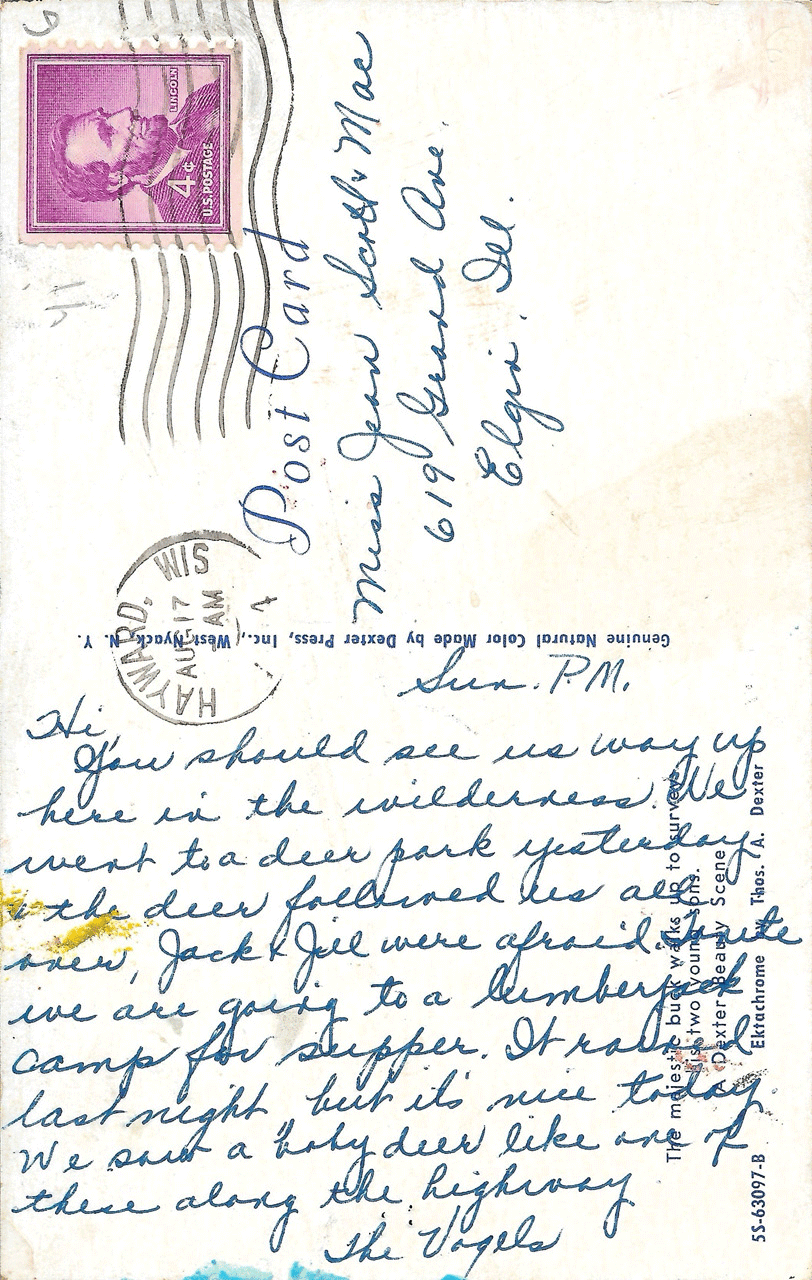 LINCOLN
4¢
U.S. POSTAGE
HAYWARD, WIS
AUG 17
AM
Post Card
Miss Jean Scott & Mae
619 Grand Ave.
Elgin, Ill.
Genuine Natural Color Made by Dexter Press, Inc., West Nyack, N. Y.
Sun. P.M.
Hi,
You should see us way up
here in the wilderness. We
went to a deer park yesterday
& the deer followed us all
over, Jack & Jill were afraid.
we are going to a lumberjack
camp for supper. It rained
last night, but it's nice today.
We saw a baby deer like one of
these along the highway
The Vogels
The majestic buck walks up to survey
his two young sons.
A Dexter Beauty Scene
Ektachrome by Thos. A. Dexter
5S-63097-B